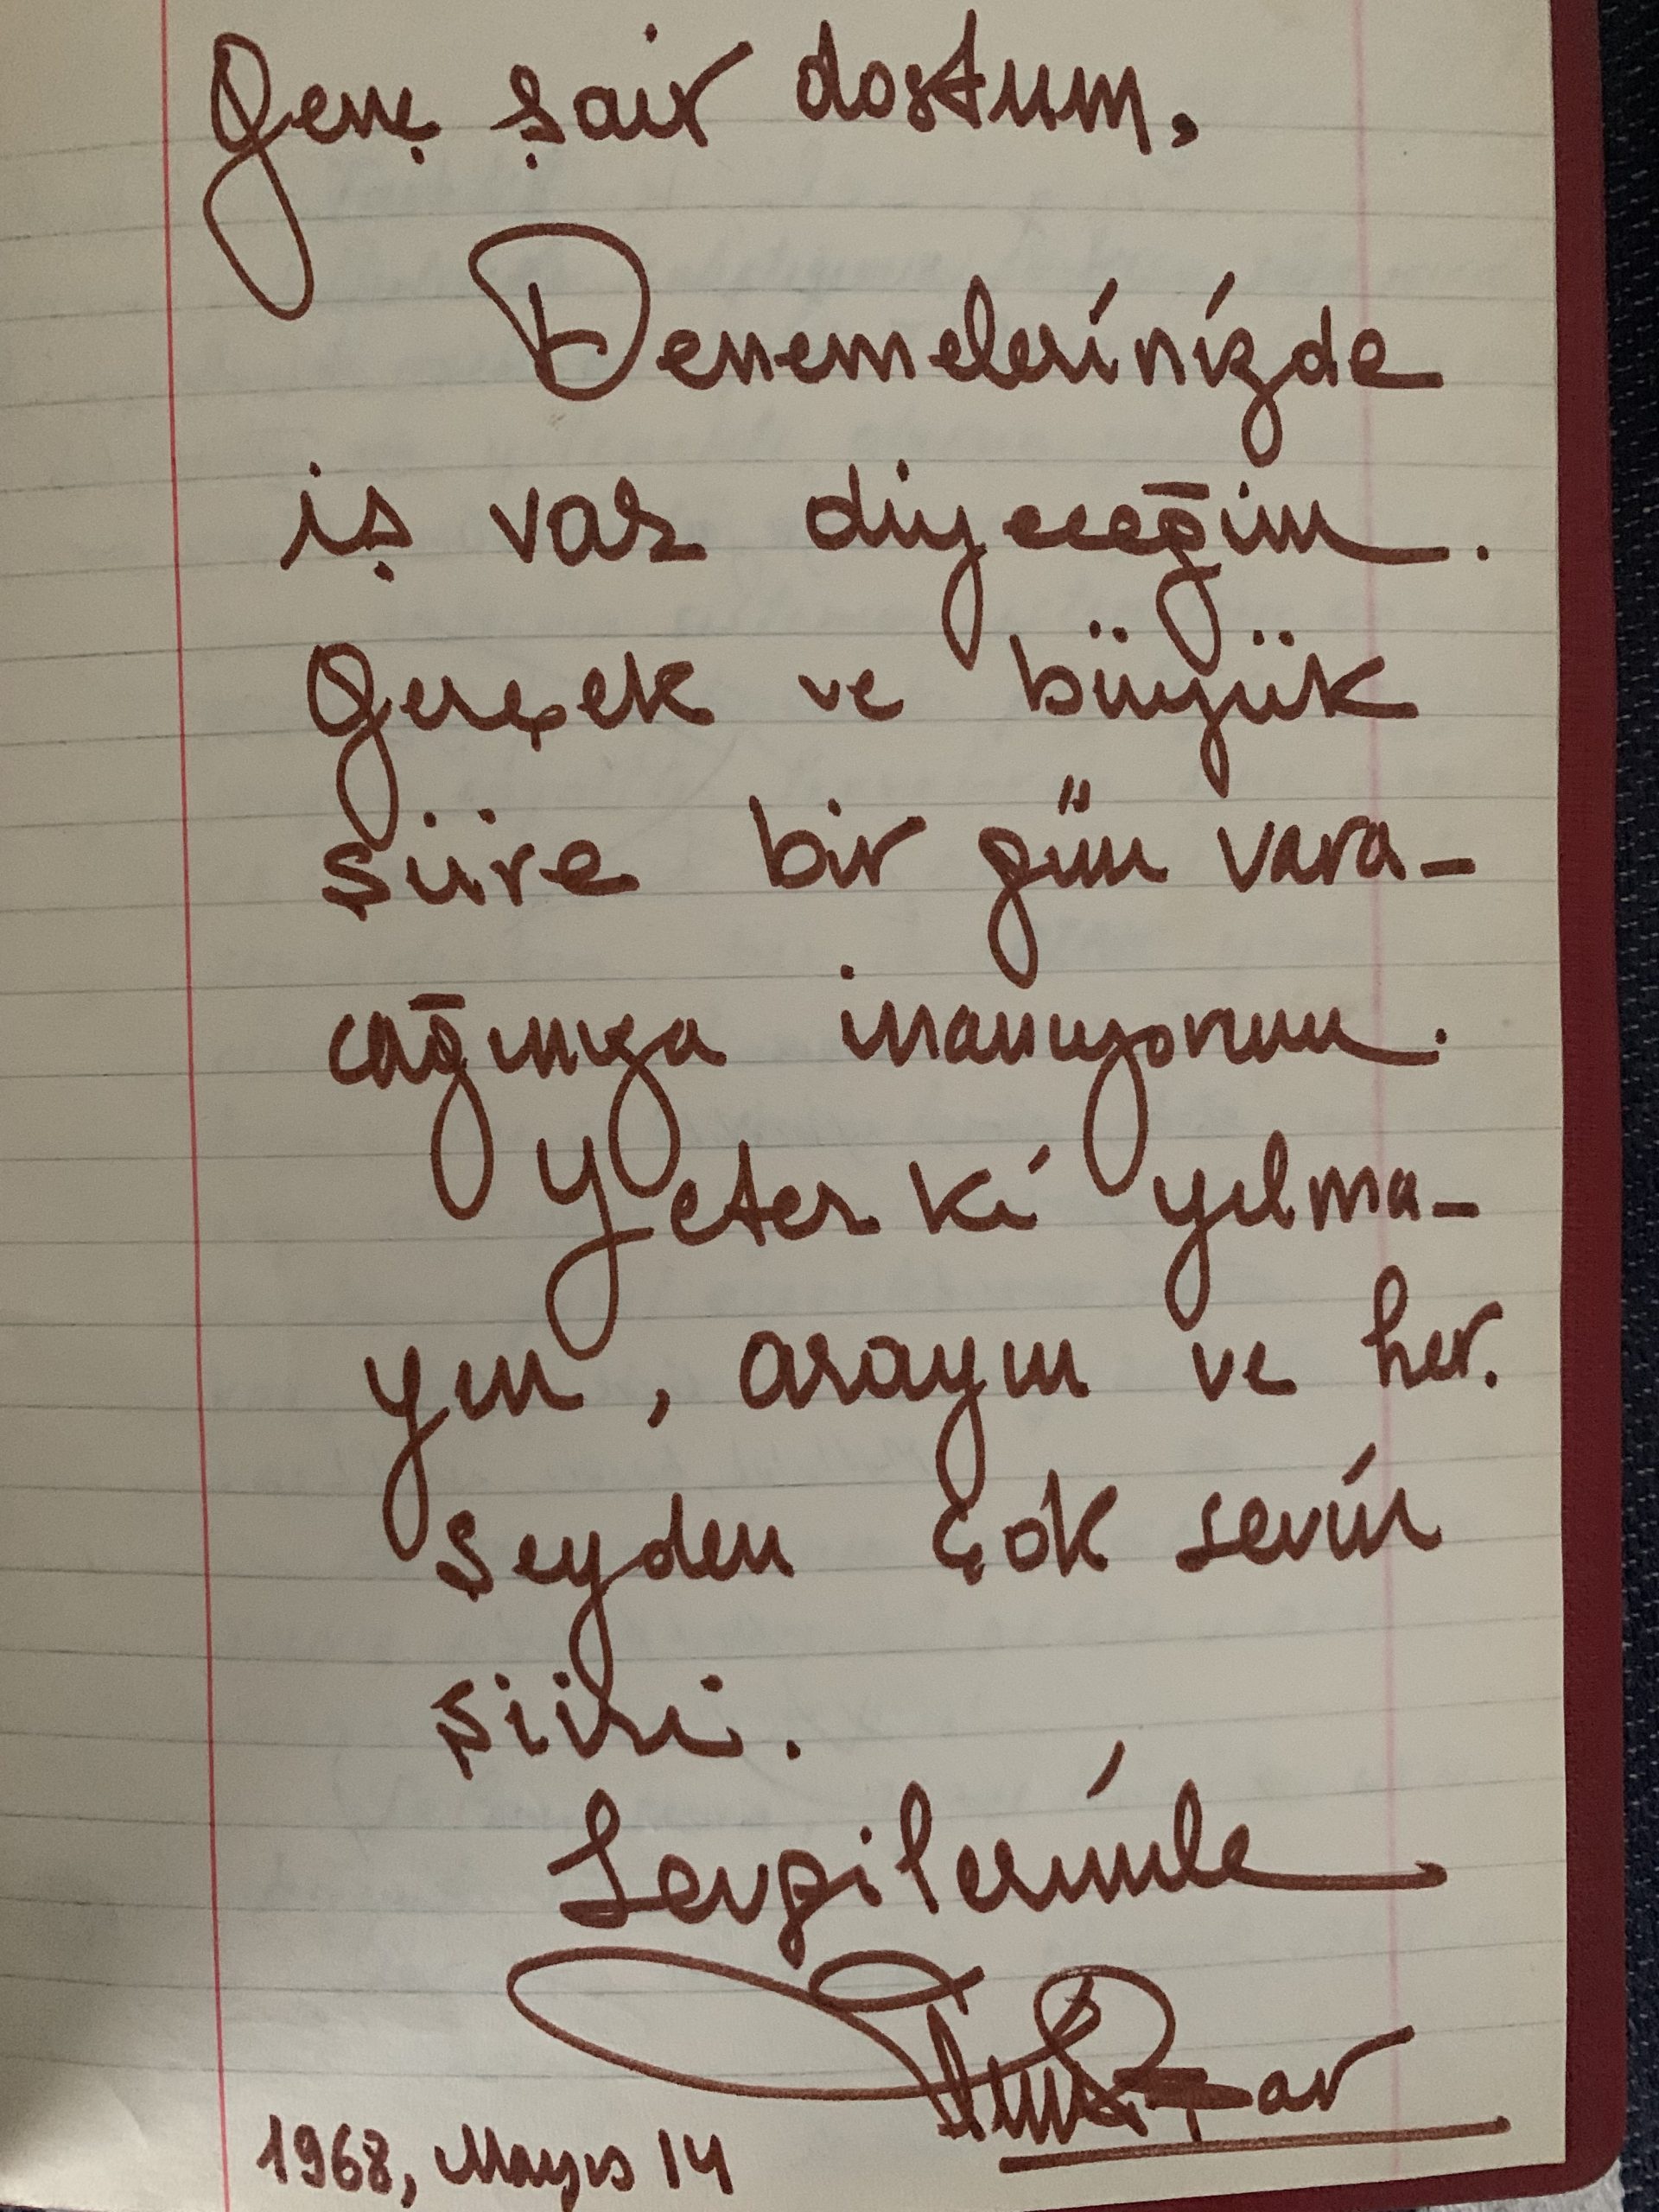 Genç şair dostum,
Denemelerinizde
iş var diyeceğim.
Gerçek ve büyük
şiire bir gün vara-
cağınıza inanıyorum.
Yeter ki yılma-
yın, arayın ve her.
şeyden çok sevin
şiiri.
Sevgilerimle
1968, Mayıs 14